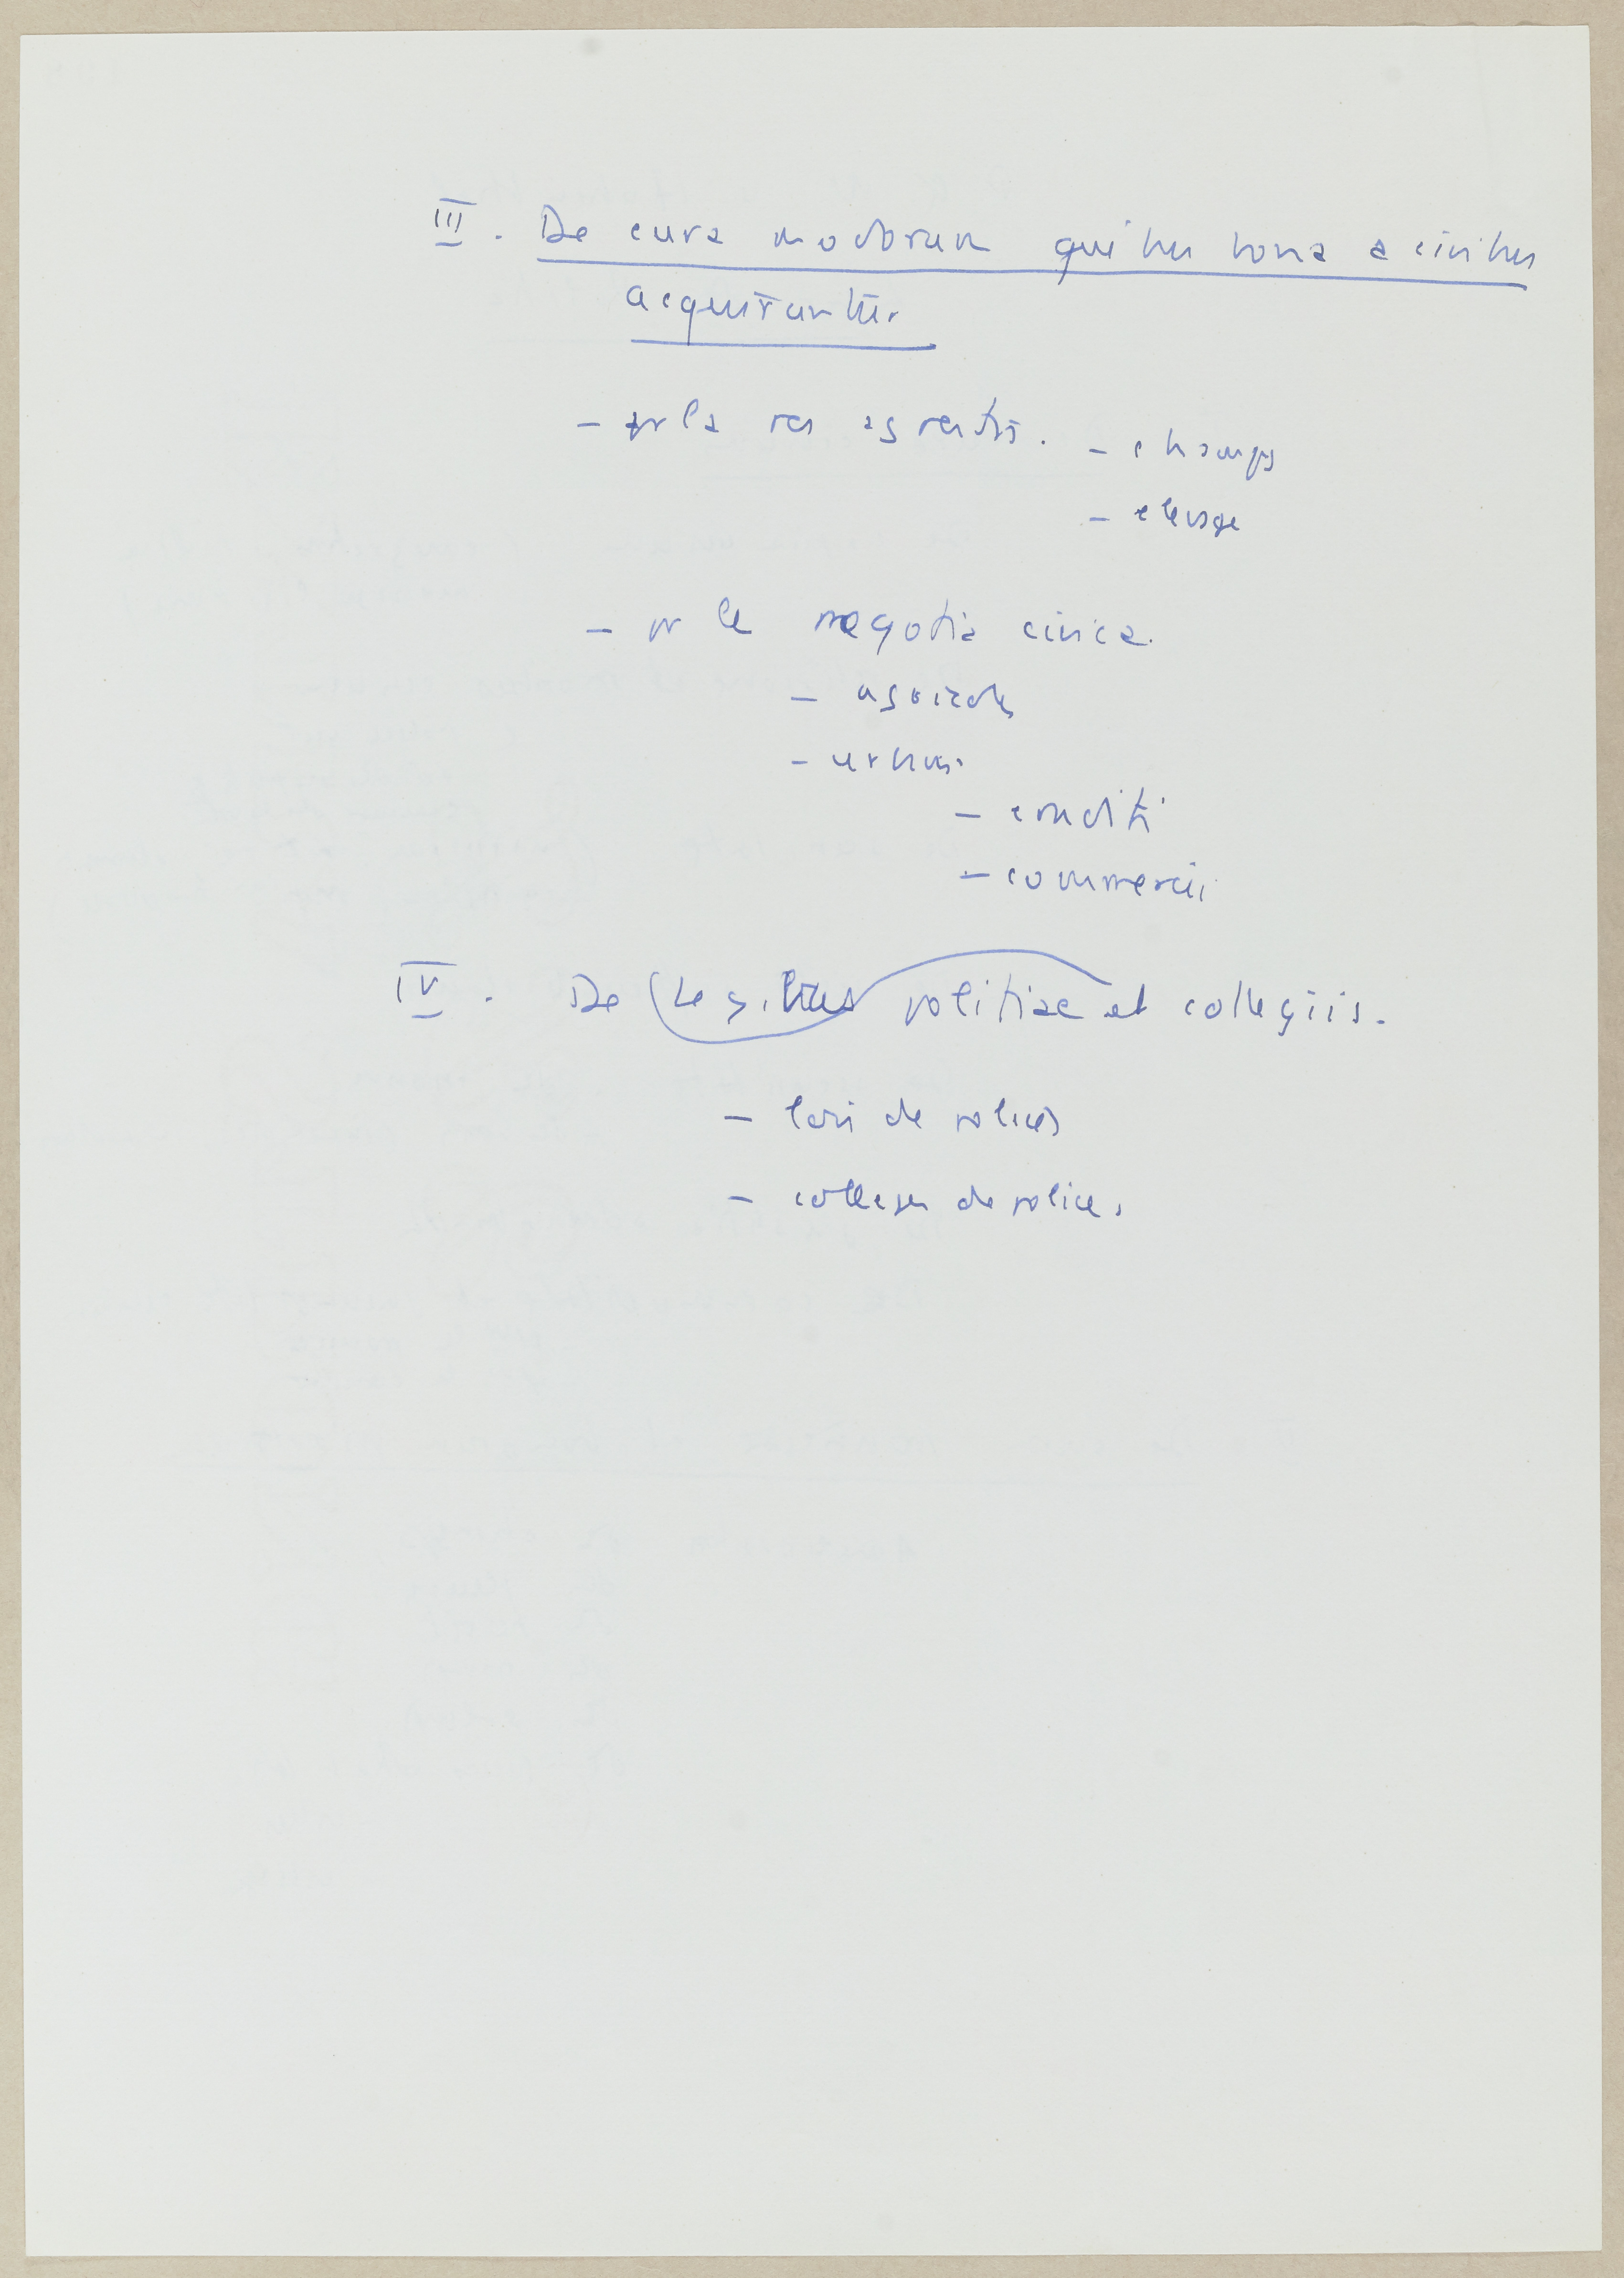 III. De cura modorum quibus bona a civibus
acquiruntur
- pr la res agrestis. - champs
- elevage
- pr le negotia civica.
- agricoles
- urbai
- conditi
- commercii
IV. De Legibus politiae et collegiis.
- lois de police
- colleges de police.